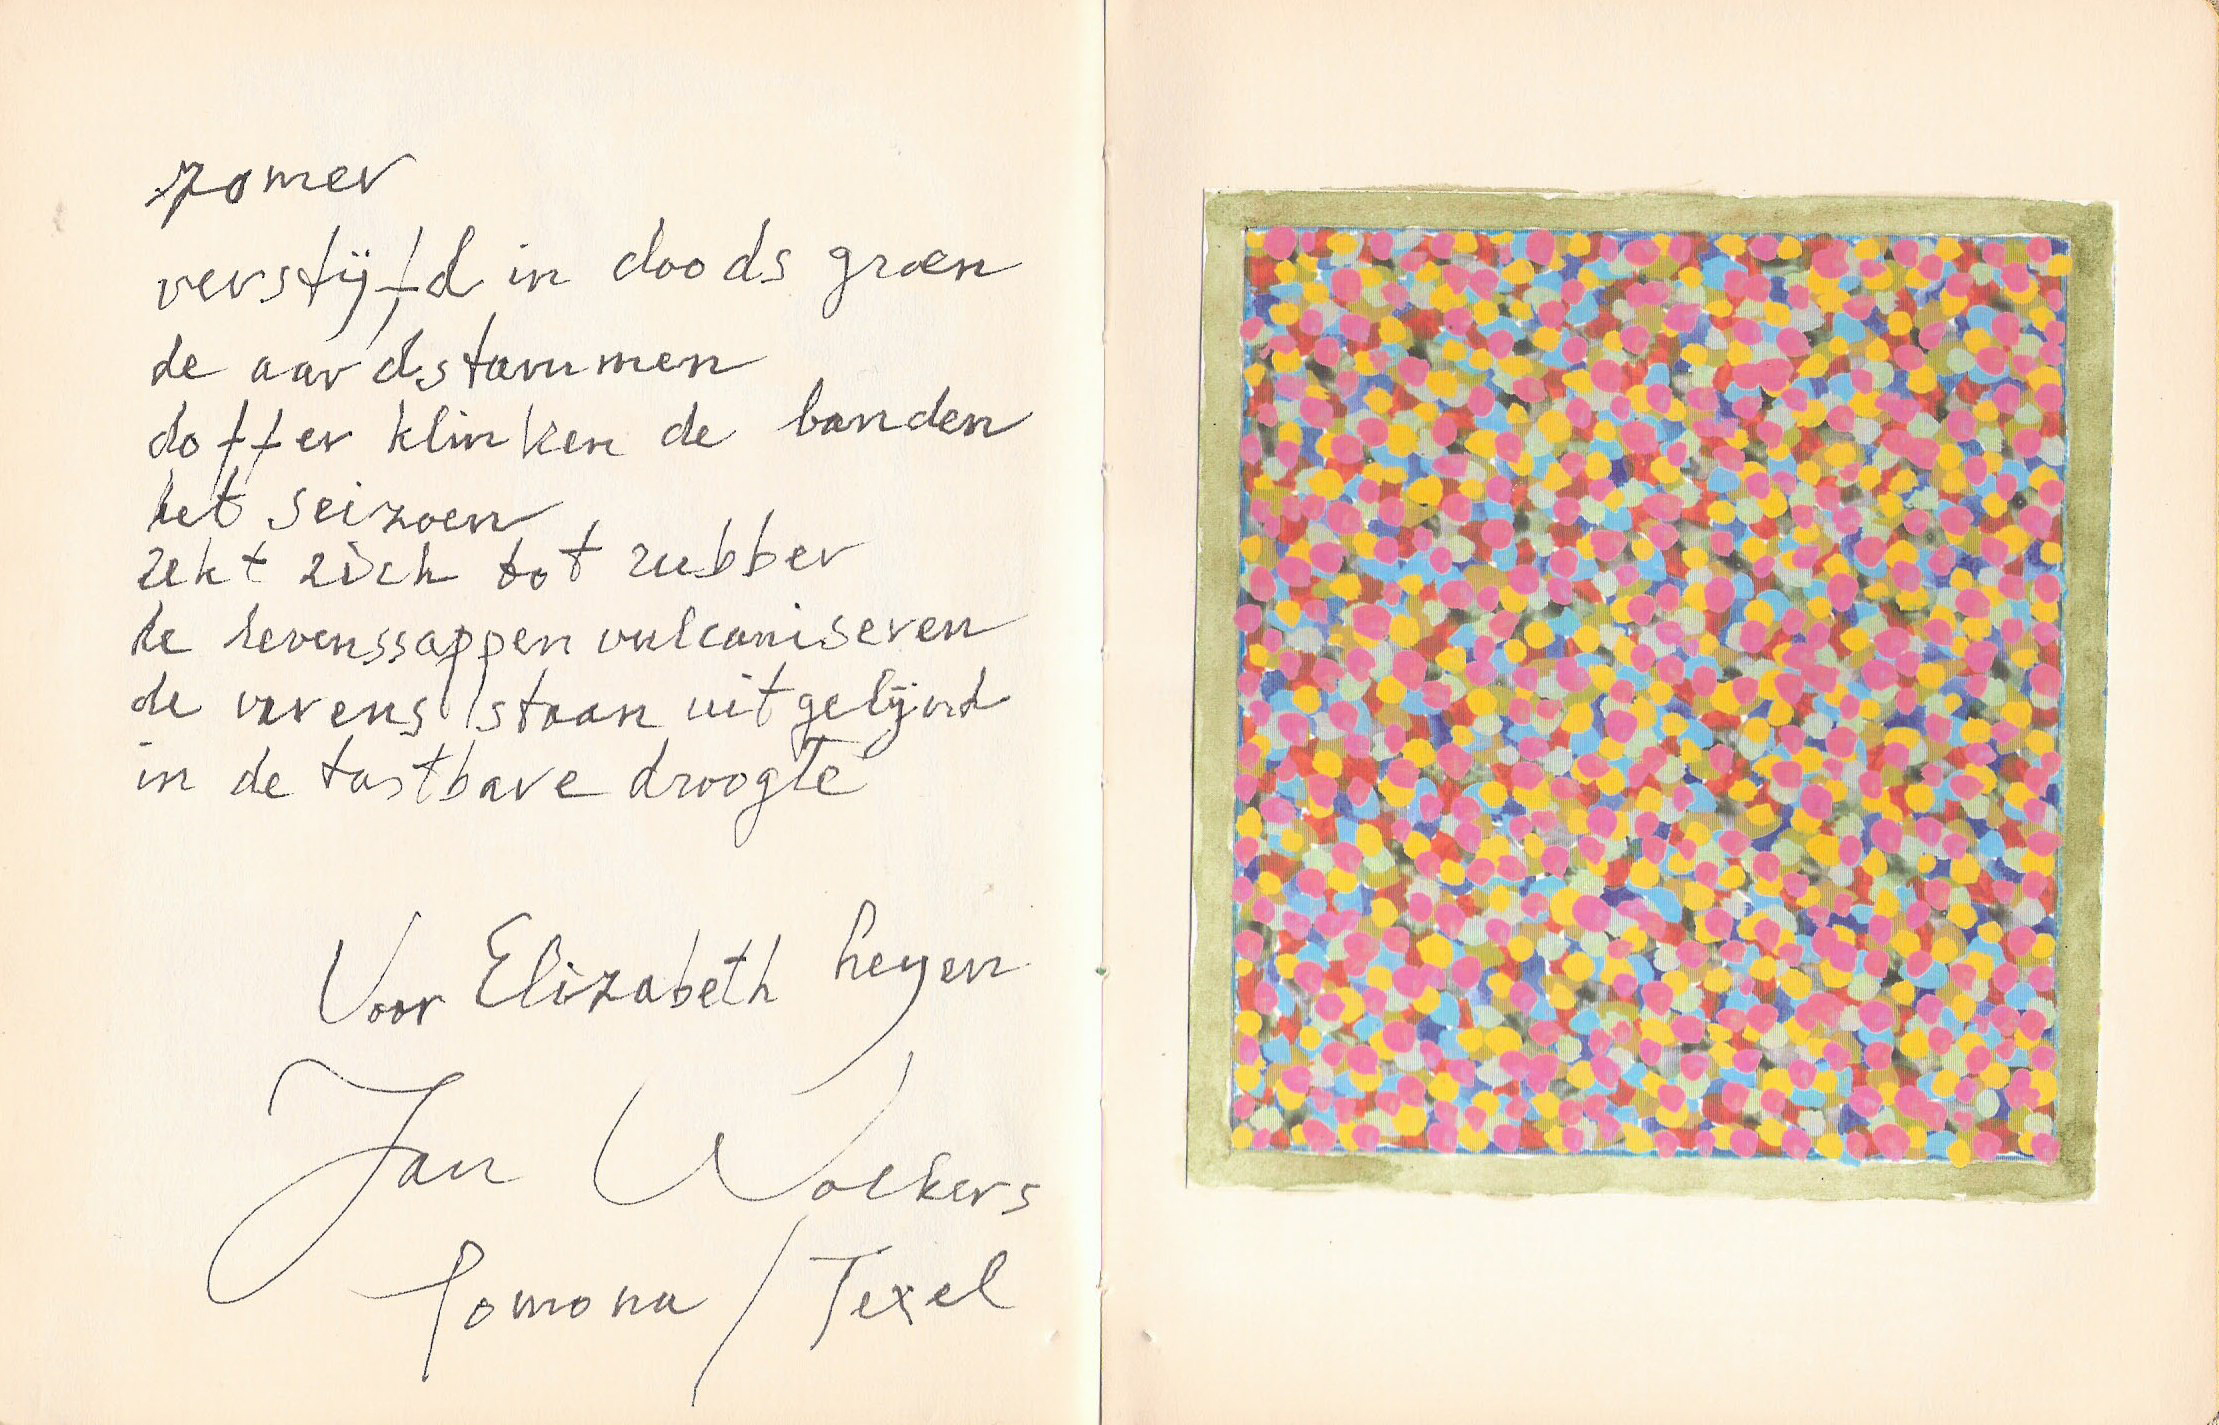 zomer
verstijfd in doods groen
de aardstammen
doffer klinken de banden
het seizoen
rekt zich tot rubber
de levenssappen vulcaniseren
de varens staan uitgelijnd
in de tastbare droogte
Voor Elizabeth heyen
Jan Wolkers
Pomona / Texel